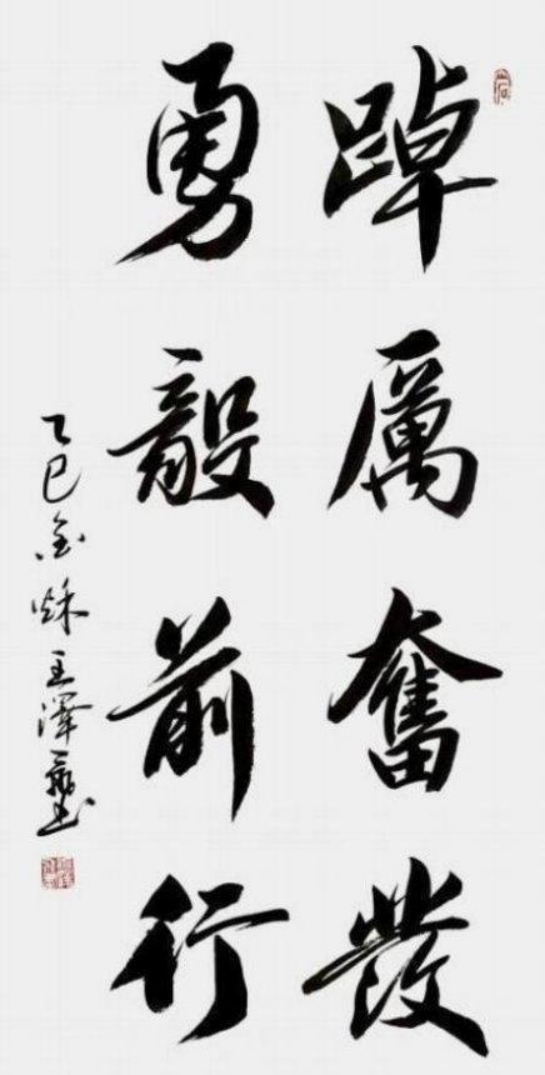 踔厲奮發
勇毅前行
乙巳金烁王澤